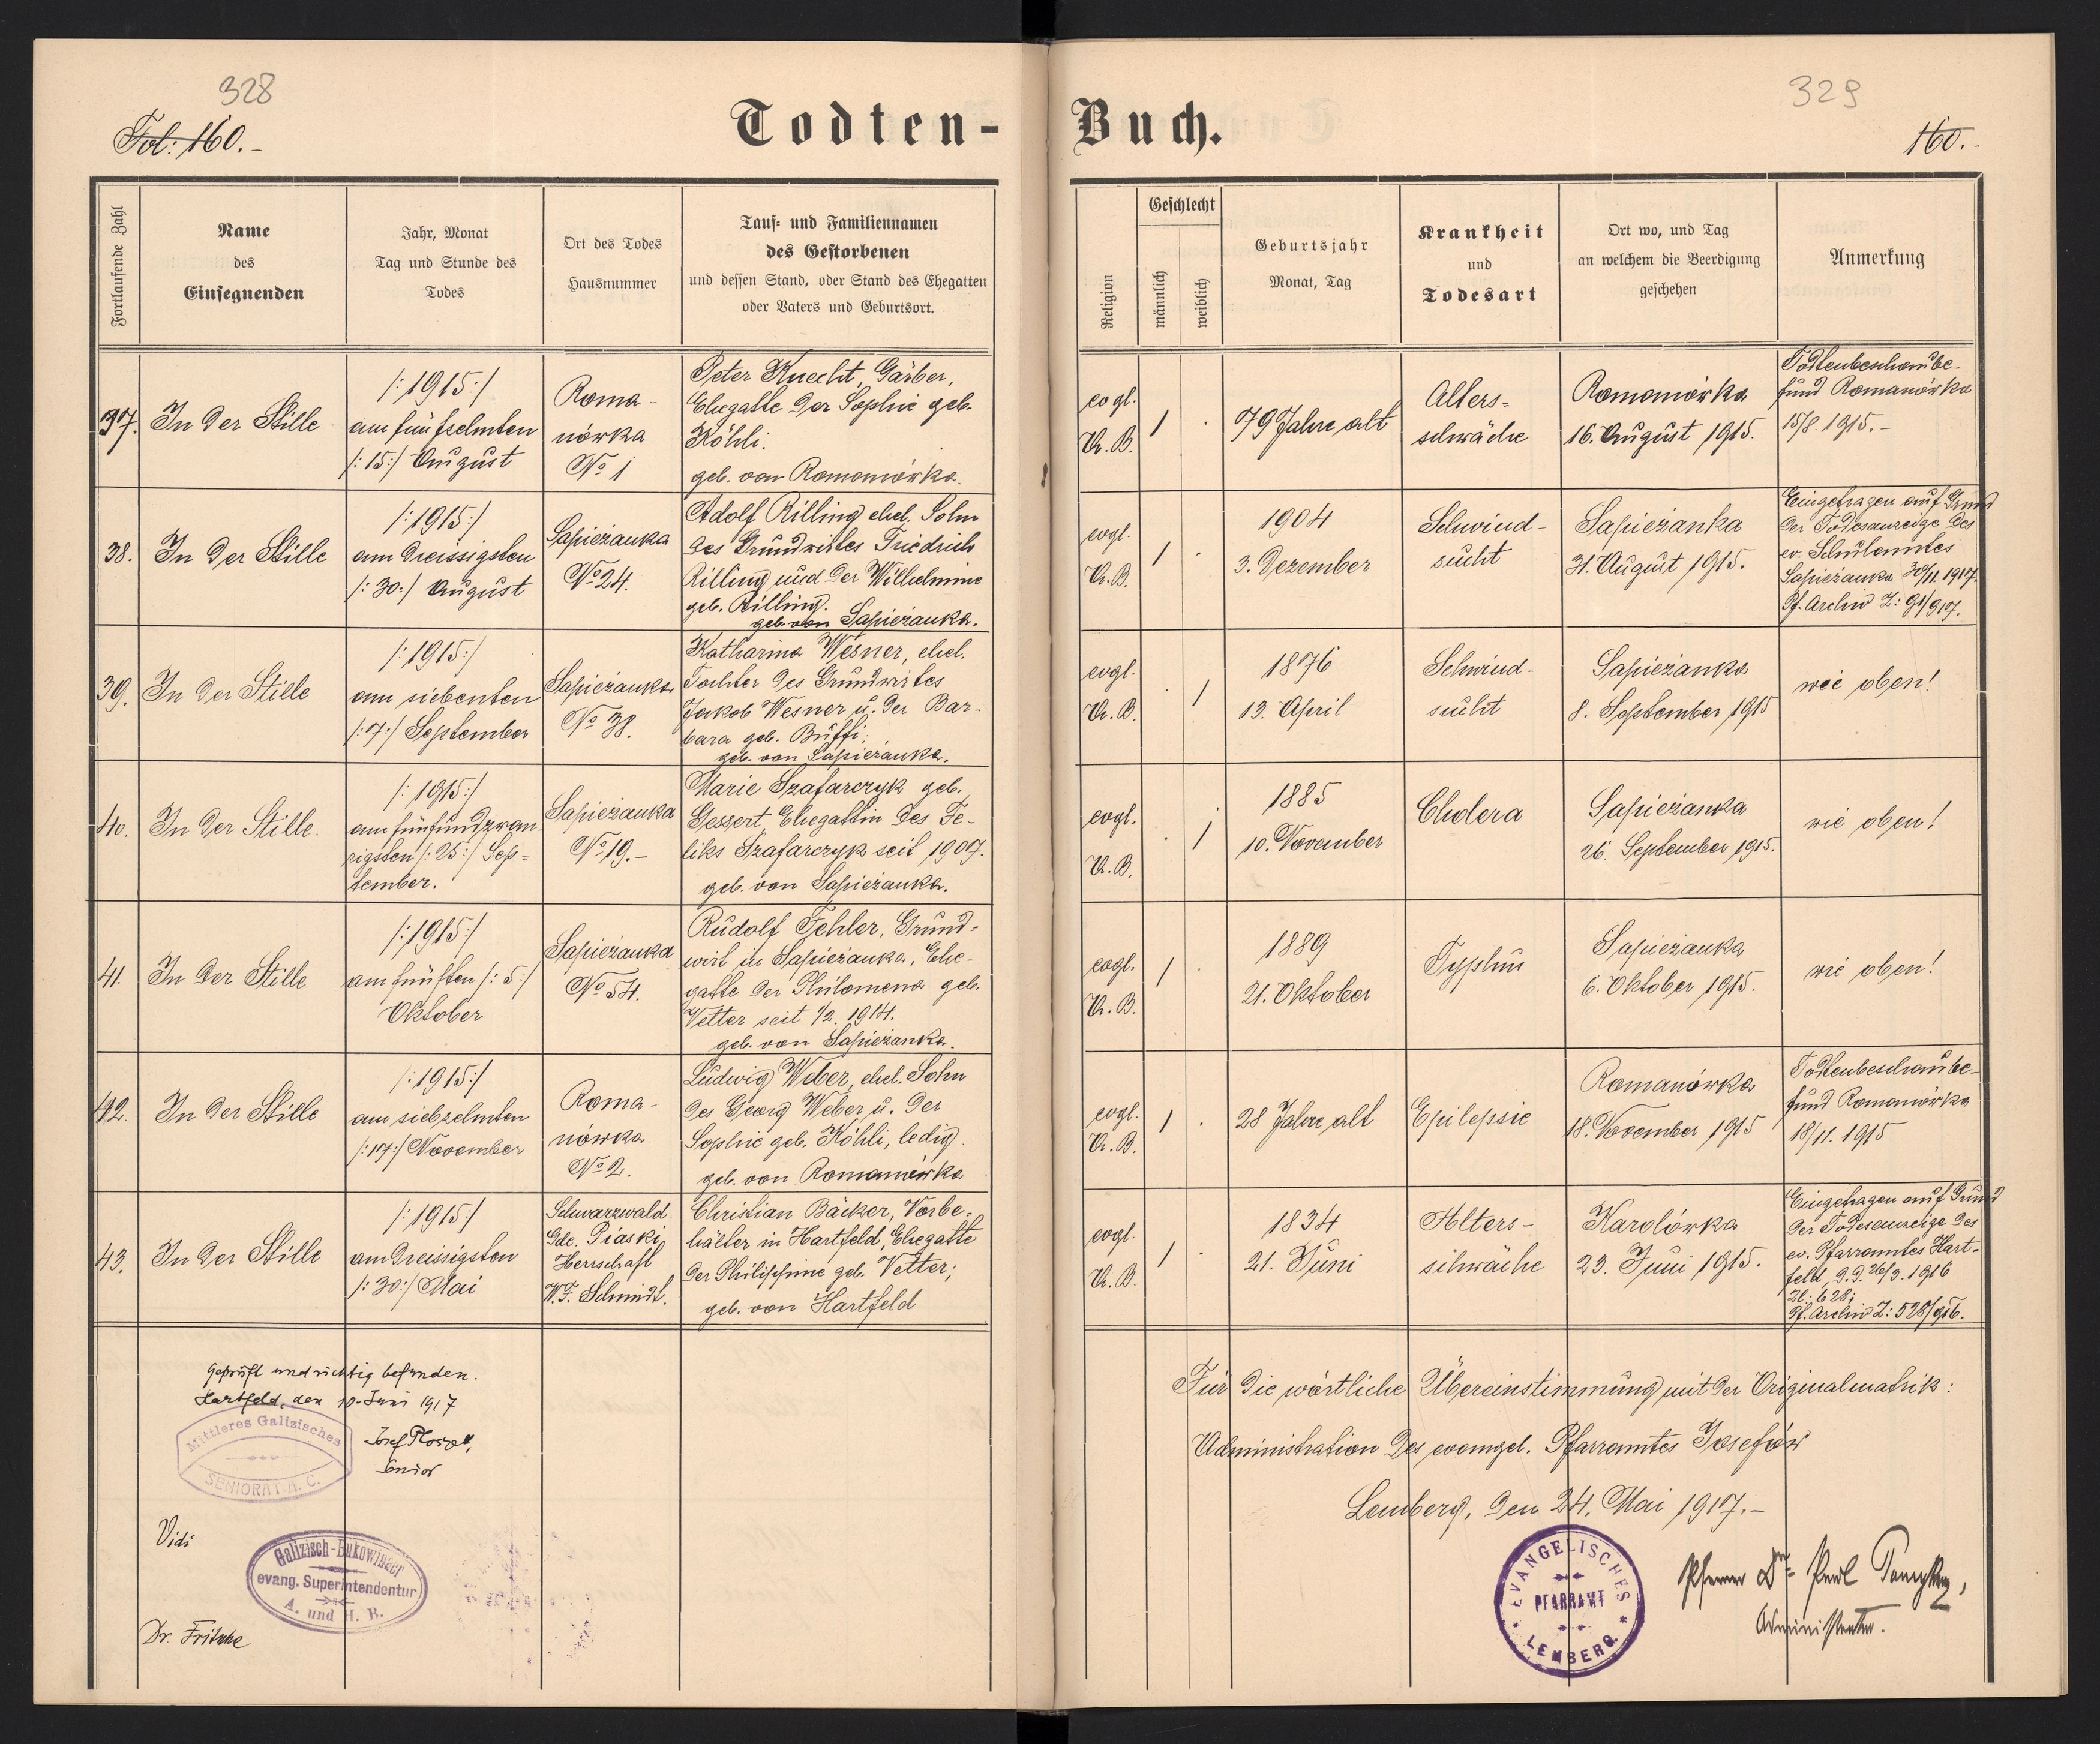 328
Fol: 160.-
Todten-
Fortlaufende Zahl
Name
des
Einsegnenden
Jahr, Monat
Tag und Stunde des
Todes
Ort des Todes
Hausnummer
Tauf- und Familiennamen
des Gestorbenen
und dessen Stand, oder Stand des Ehegatten
oder Vaters und Geburtsort.
37.
In der Stille
/:1915:/
am fünfzehnten
/:15:/ August
Roma-
nówka
No 1
Peter Knecht, Gärber,
Ehegatte der Sophie geb.
Köhli.
geb. von Romanówka.
38.
In der Stille
/:1915:/
am dreissigsten
/:30:/ August
Sapieżanka
No 24.
Adolf Rilling ehel. Sohn
des Grundwirtes Friedrich
Rilling und der Wilhelmine
geb. Rilling.
geb. von Sapieżanka.
39.
In der Stille
/:1915:/
am siebenten
/:7:/ September
Sapieżanka
No 38.
Katharina Wesner, ehel.
Tochter des Grundwirtes
Jakob Wesner u. der Bar-
bara geb. Büffi;
geb. von Sapieżanka.
40.
In der Stille.
/:1915:/
am fünfundzwan-
zigsten /:25:/ Sep-
tember.
Sapieżanka
No 19.-
Marie Szafarczyk geb.
Gessert Ehegattin des Fe-
liks Szafarczyk seit 1907.
geb. von Sapieżanka.
41.
In der Stille
/:1915:/
am fünften /:5:/
Oktober
Sapieżanka
No 54.
Rudolf Fehler, Grund-
wirt in Sapieżanka, Ehe-
gatte der Philomena geb.
Vetter seit 1/2. 1914.
geb. von Sapieżanka.
42.
In der Stille
/:1915:/
am siebzehnten
/:17:/ November
Roma-
nówka
No 2.
Ludwig Weber, ehel. Sohn
des Georg Weber u. der
Sophie geb. Köhli, ledig.
geb. von Romanówka
43.
In der Stille
/:1915:/
am dreissigsten
/:30:/ Mai
Schwarzwald
Gde. Piaski
Herrschaft
W.F. Schmidt.
Christian Bäcker, Vorbe-
hälter in Hartfeld, Ehegatte
der Philippine geb. Vetter;
geb. von Hartfeld
Geprüft und richtig befunden.
Hartfeld, den 10. Juni 1917
Mittleres Galizisches
SENIORAT A. C.
Josef
Senior
Vidi
Galizisch-Bukowinaer
evang. Superintendentur
A. und H. B.
Dr. Fritsche
329
Buch.
160.-
Religion
Geschlecht
männlich
weiblich
Geburtsjahr
Monat, Tag
Krankheit
und
Todesart
Ort wo, und Tag
an welchem die Beerdigung
geschehen
Anmerkung
evgl.
A. B.
1
79 Jahre alt
Alters-
schwäche
Romanówka
16. August 1915.
Todtenbeschaube-
fund Romanówka
15/8. 1915.-
evgl.
A. B.
1
1904
3. Dezember
Schwind-
sucht
Sapieżanka
31. August 1915.
Eingetragen auf Grund
der Todesanzeige des
ev. Schulamtes
Sapieżanka 30/11. 1917.
Pf. Archiv Z: 91/917.
evgl.
A. B.
1
1876
13. April
Schwind-
sucht
Sapieżanka
8. September 1915
wie oben!
evgl.
A. B.
1
1885
10. November
Cholera
Sapieżanka
26. September 1915.
wie oben!
evgl.
A. B.
1
1889
21. Oktober
Typhus
Sapieżanka
6. Oktober 1915.
wie oben!
evgl.
A. B.
1
28 Jahre alt
Epilepsie
Romanówka
18. November 1915
Todtenbeschaube-
fund Romanówka
18/11. 1915
evgl.
A. B.
1
1834
21. Juni
Alters-
schwäche
Karolówka
23. Juni 1915.
Eingetragen auf Grund
der Todesanzeige des
ev. Pfarramtes Hart-
feld, d.d. 26/3. 1916
Zl: 628;
Pf. Archiv Z: 528/916.
Für die wörtliche Übereinstimmung mit der Originalmatrik:
Administration des evangel. Pfarramtes Josefów
Lemberg, den 24. Mai 1917.-
EVANGELISCHES
PFARRAMT
LEMBERG
Pfarrer Dr
Administrator.